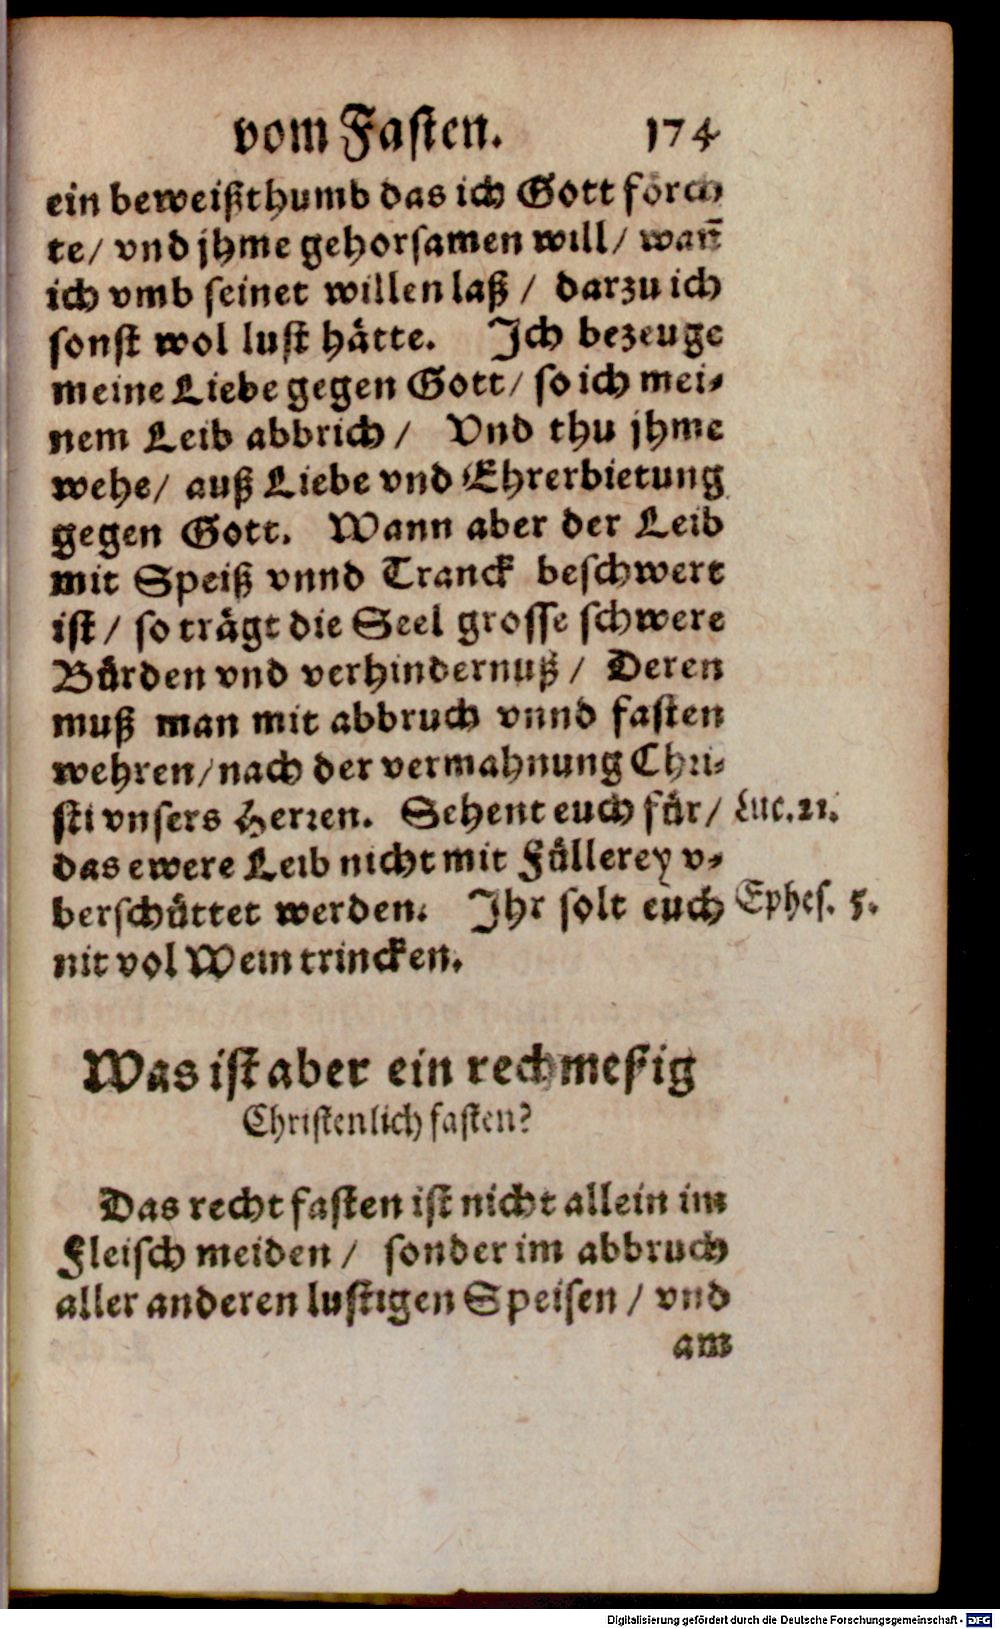 vom Fasten. 174
ein beweißthumb das ich Gott förch
te/ vnd jhme gehorsamen will/ wañ
ich vmb seinet willen laß / darzu ich
sonst wol lust hätte. Ich bezeuge
meine Liebe gegen Gott/ so ich mei-
nem Leib abbrich / Vnd thu jhme
wehe/ auß Liebe vnd Ehrerbietung
gegen Gott. Wann aber der Leib
mit Speiß vnnd Tranck beschwert
ist / so trägt die Seel grosse schwere
Bürden vnd verhindernuß / Deren
muß man mit abbruch vnnd fasten
wehren/nach der vermahnung Chri-
sti vnsers Herren. Sehent euch für/ Luc. 21.
das ewere Leib nicht mit Füllerey v-
berschüttet werden. Ihr solt euch Ephes. 5.
nit vol Wein trincken.
Was ist aber ein rechmeßig
Christenlich fasten?
Das recht fasten ist nicht allein im
Fleisch meiden / sonder im abbruch
aller anderen lustigen Speisen / vnd
am
Digitalisierung gefördert durch die Deutsche Forschungsgemeinschaft - DFG